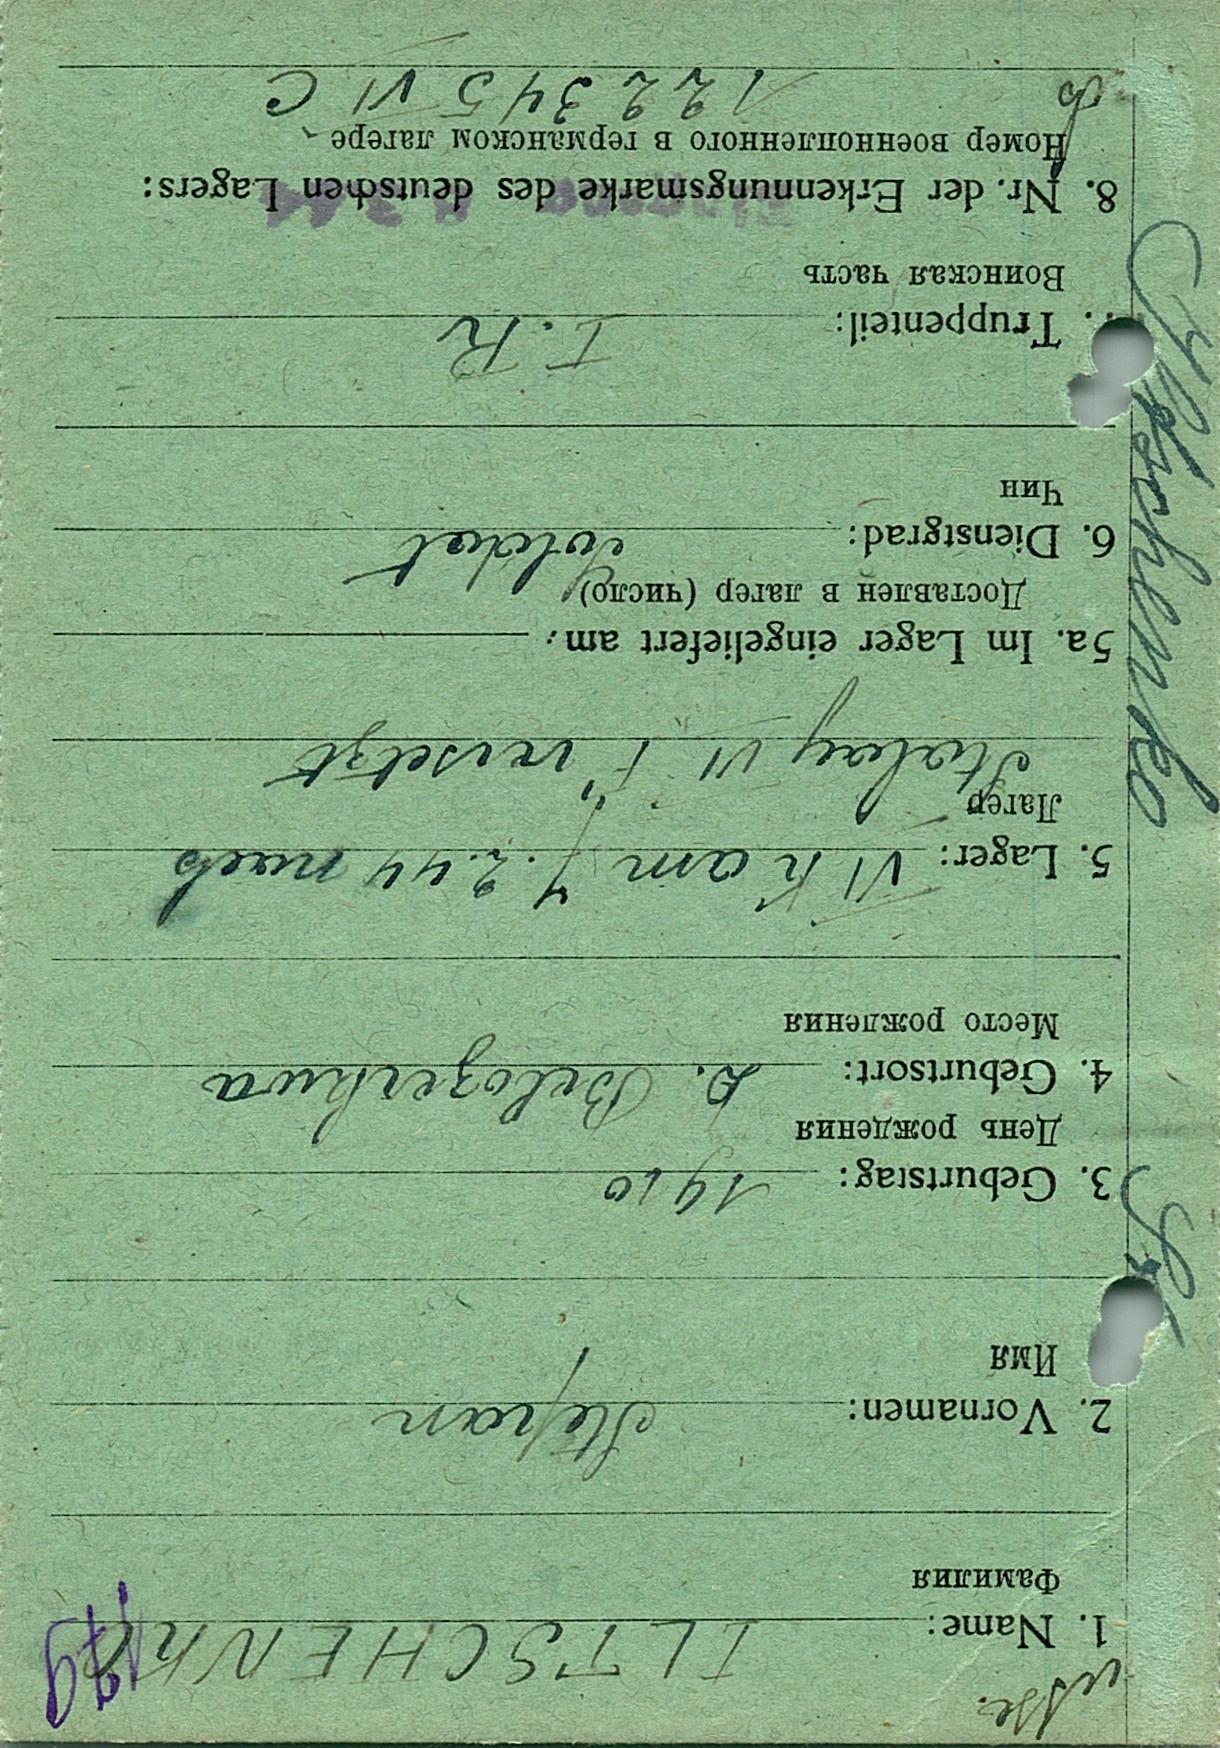 1. Name: ILTSCHENKO
Фамилия
2. Vornamen: Stefan
Имя
3. Geburtstag: 1910
День рождения
4. Geburtsort: D. Belozerkwa
Место рождения
5. Lager: VI K am 7.2.44 nach
Лагер
Stalag VI F versetzt
5a. Im Lager eingeliefert am:
Доставлен в лагер (число)
6. Dienstgrad: Soldat
Чин
Truppenteil: I.R
Воинская часть
8. Nr. der Erkennungsmarke des deutschen Lagers:
Номер военнопленного в германском лагере
122345 VI C